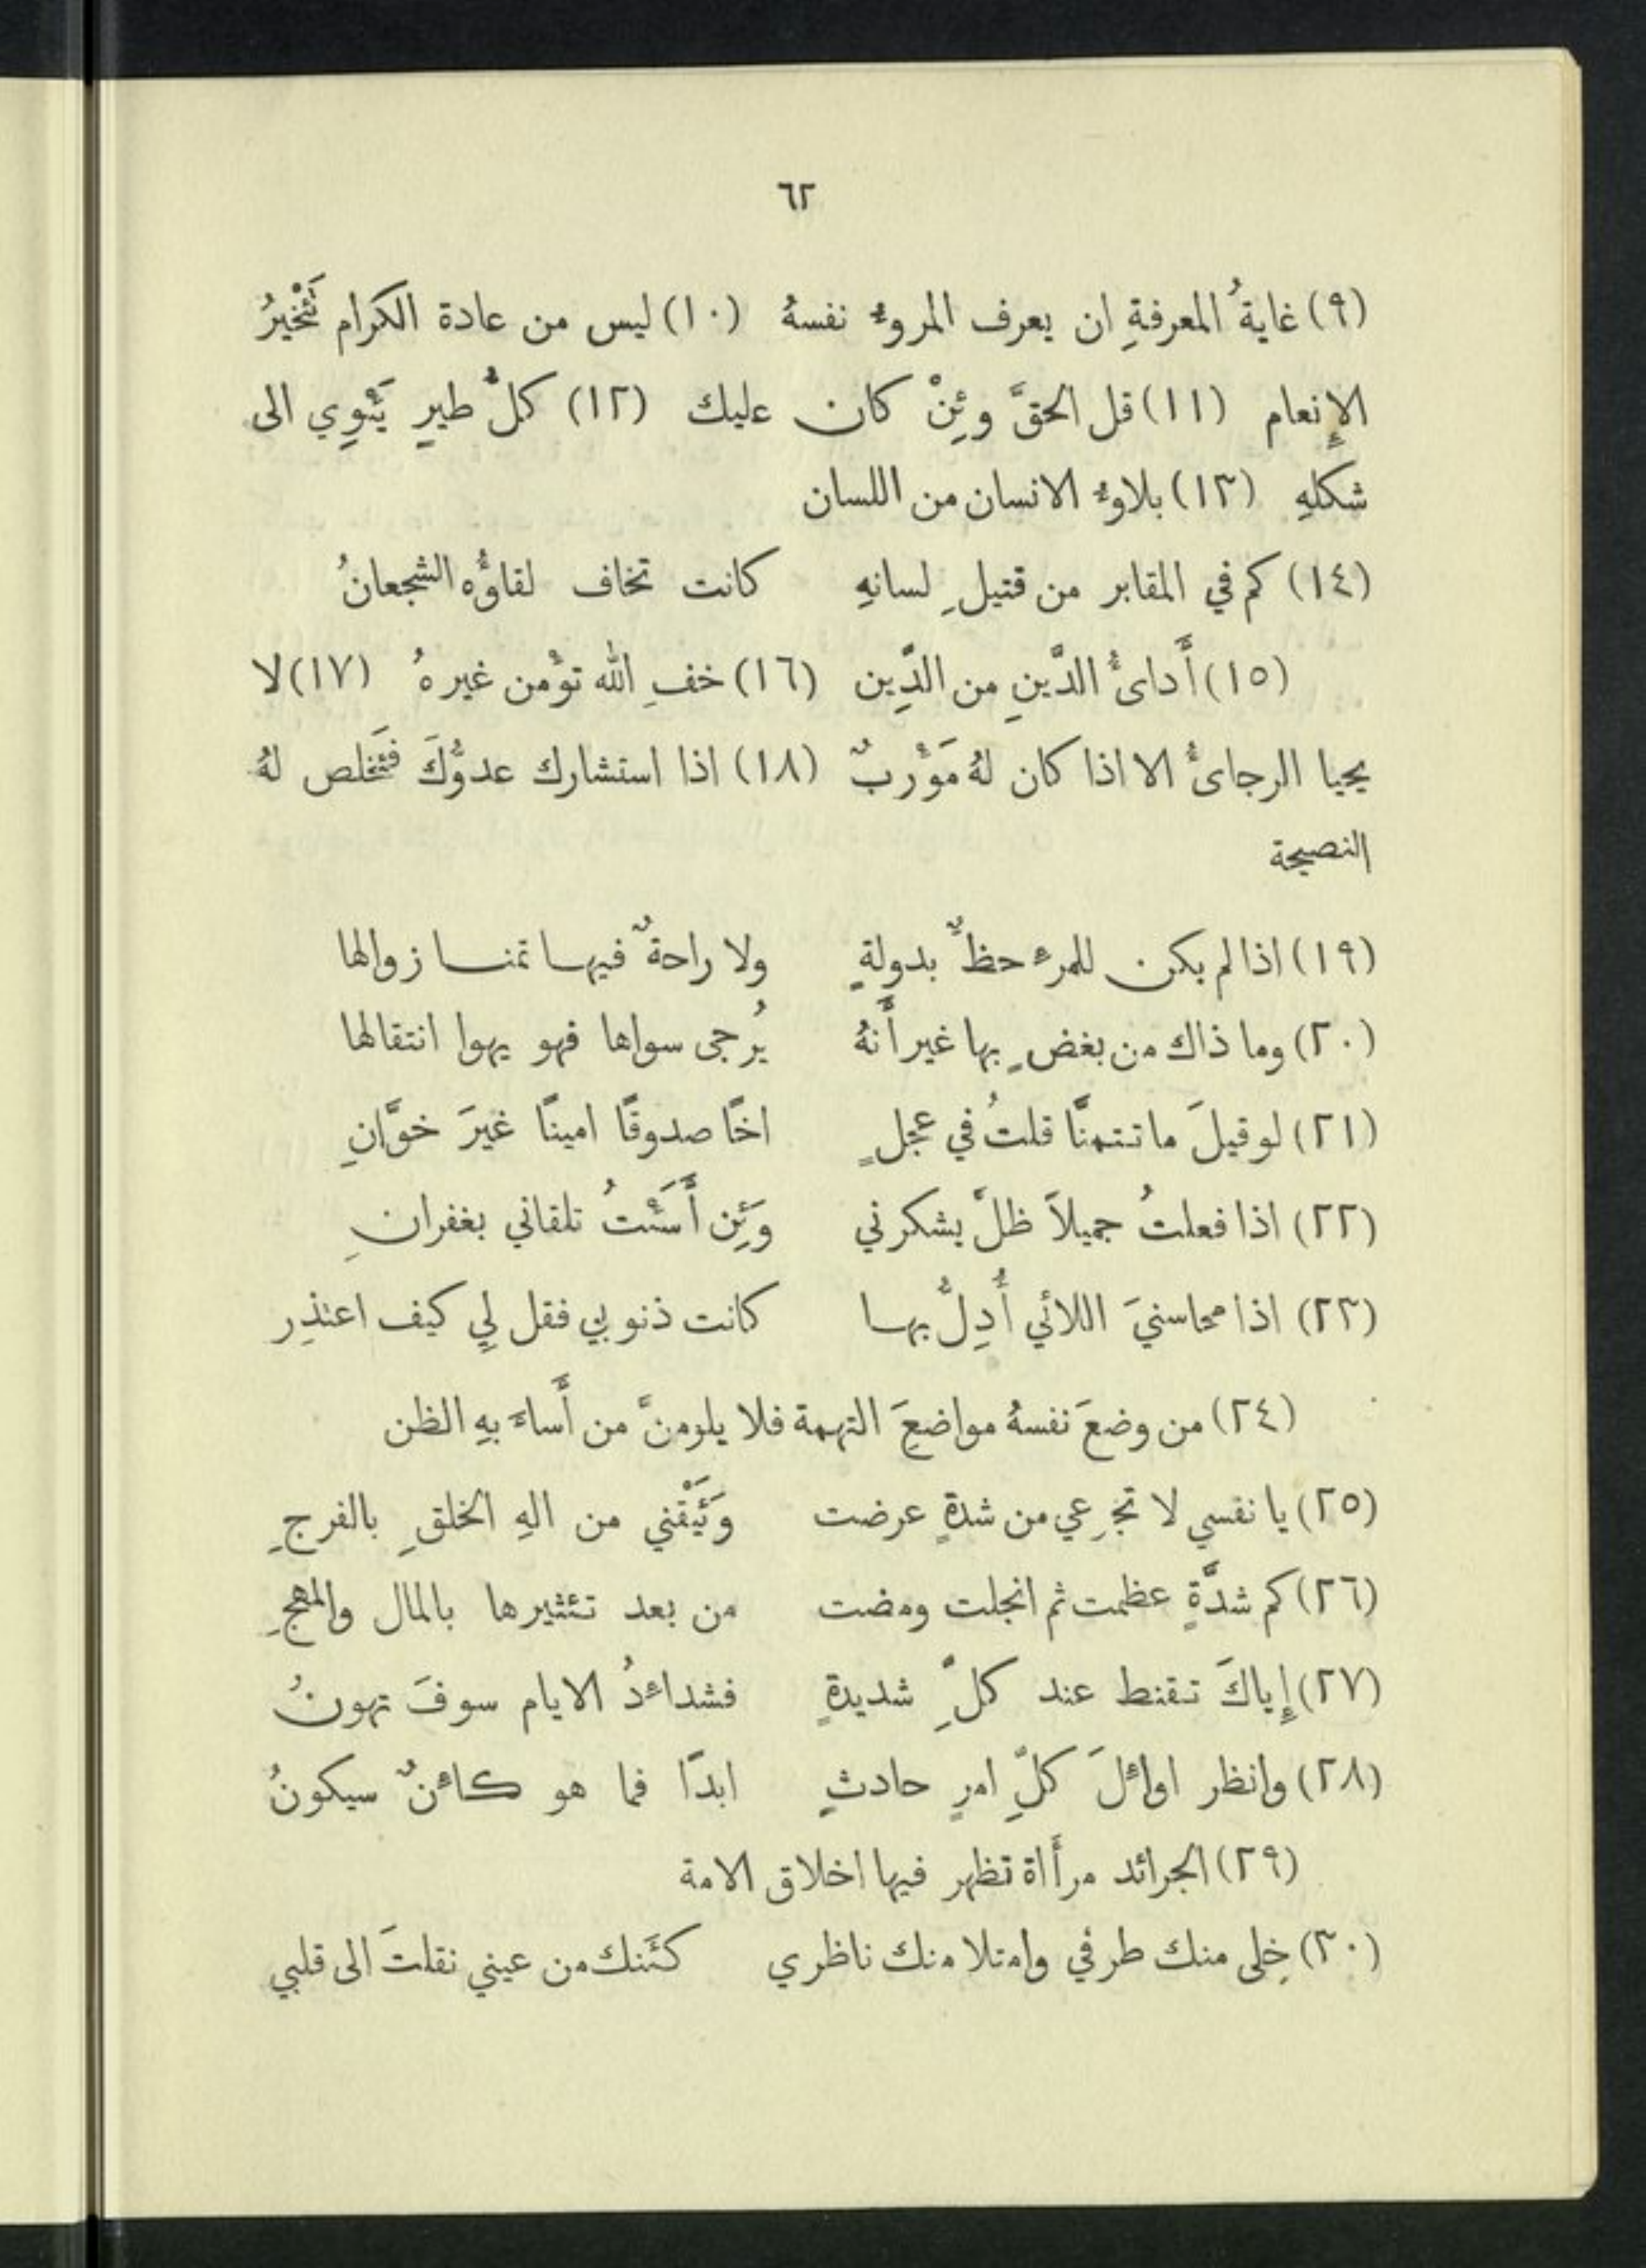 ٦٢
(٩) غايةُ المعرفةِ ان يعرف المروءُ نفسهُ (١٠) ليس من عادة الكرام تَئْخيرُ
الإِنعام (١١) قل الحقَّ وئِنْ كان عليك (١٢) كلُّ طيرٍ يَئْوِي الى
شكلهِ (١٣) بلاوءُ الانسان من اللسان
(١٤) كم في المقابر من قتيلِ لسانهِ كانت تخاف لقاؤُه الشجعانُ
(١٥) أَداىُٔ الدَّينِ من الدِّين (١٦) خفِ الله تؤْمن غيرهُ (١٧) لا
يحيا الرجاىُٔ الا اذا كان لهُ مَؤْربٌ (١٨) اذا استشارك عدوُّكَ فَئَخلص لهُ
النصيحة
(١٩) اذا لم يكن للمرءِ حظٌّ بدولةٍ ولا راحةٌ فيها تمنا زوالها
(٢٠) وما ذاك من بغضٍ بها غير أَنَّهُ يُرجى سواها فهو يهوا انتقالها
(٢١) لو قيلَ ما تتمنَّا قلتُ في عجلٍ اخًا صدوقًا امينًا غيرَ خوَّانِ
(٢٢) اذا فعلتُ جميلاً ظلَّ يشكرني وَئِن أَسَئْتُ تلقاني بغفرانِ
(٢٣) اذا محاسنيَ اللائي أُدِلُّ بها كانت ذنوبي فقل لِي كيف اعتذِر
(٢٤) من وضعَ نفسهُ مواضعِعَ التهمة فلا يلومنَّ من أَساءَ بهِ الظن
(٢٥) يا نفسي لا تجزعي من شدةٍ عرضت وَئَيْقَني من الهِ الخلقِ بالفرجِ
(٢٦) كم شدَّةٍ عظمت ثم انجلت ومضت من بعد تئثيرها بالمال والمهجِ
(٢٧) إِياكَ تقنط عند كلِّ شديدةٍ فشداءدُ الايام سوفَ تهونُ
(٢٨) وانظر اواءلَ كلِّ امرٍ حادثٍ ابدًا فما هو كاءنٌ سيكونُ
(٢٩) الجرائد مرأَاة تظهر فيها اخلاق الامة
(٣٠) خِلى منك طرفي وامتلا منك ناظري كئَنك من عيني نقلتَ الى قلبي